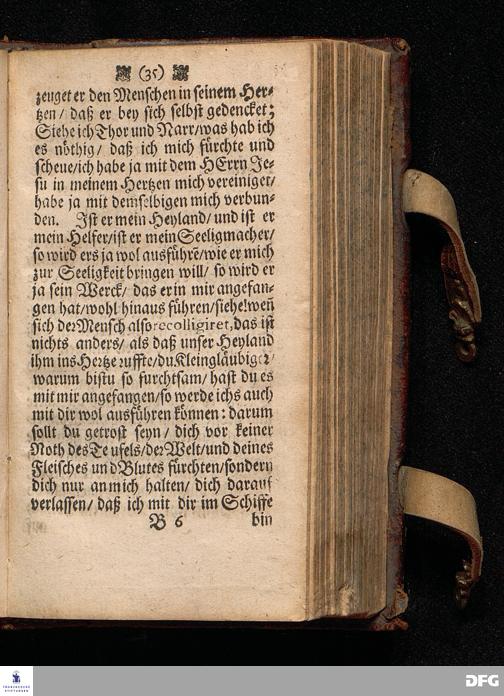 (35)
zeuget er den Menschen in seinem Her-
tzen / daß er bey sich selbst gedencket;
Siehe ich Thor und Narr/was hab ich
es nöthig/ daß ich mich fürchte und
scheue/ich habe ja mit dem HErrn Je-
su in meinem Hertzen mich vereiniget/
habe ja mit demselbigen mich verbun-
den. Ist er mein Heyland/ und ist er
mein Helfer/ist er mein Seeligmacher/
so wird ers ja wol ausführe/wie er mich
zur Seeligkeit bringen will/ so wird er
ja sein Werck/ das er in mir angefan-
gen hat/wohl hinaus führen/siehe!weñ
sich der Mensch also recolligiret,das ist
nichts anders/ als daß unser Heyland
ihm ins Hertze ruffte/du Kleingläubiger/
warum bistu so furchtsam/ hast du es
mit mir angefangen/so werde ichs auch
mit dir wol ausführen können: darum
sollt du getrost seyn/ dich vor keiner
Noth des Teufels/der Welt/und deines
Fleisches und Blutes fürchten/sondern
dich nur an mich halten/ dich darauf
verlassen/ daß ich mit dir im Schiffe
B 6 bin
FRANCKESCHE
STIFTUNGEN
DFG